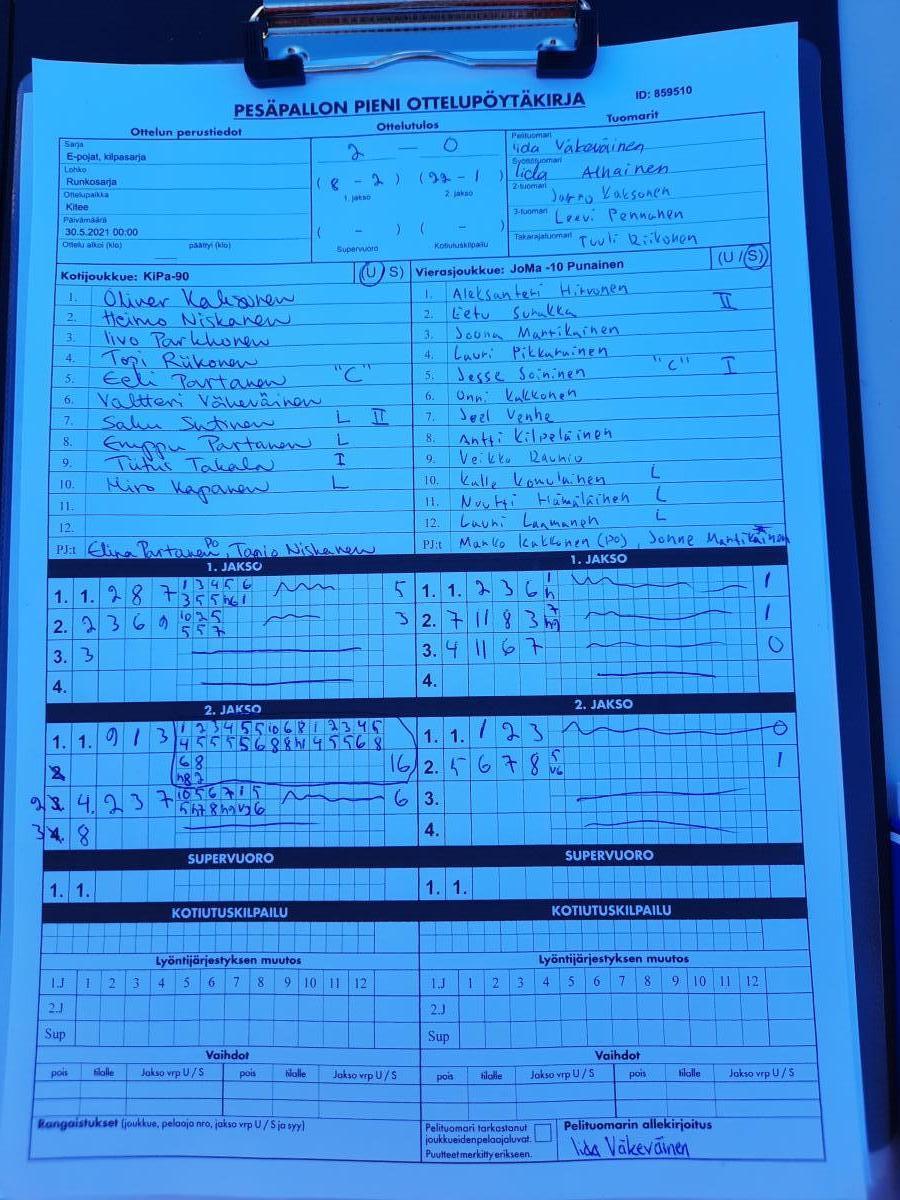 PESÄPALLON PIENI OTTELUPÖYTÄKIRJA ID: 859510
Ottelun perustiedot Ottelutulos Tuomarit
Sarja
E-pojat, kilpasarja
Lohko
Runkosarja
Ottelupaikka
Kitee
Päivämäärä
30.5.2021 00:00
Ottelu alkoi (klo) päättyi (klo)
2 — 0
( 8 - 2 ) ( 22 - 1 )
1. jakso 2. jakso
( - ) ( - )
Supervuoro Kotiutuskilpailu
Pelituomari Iida Väkeväinen
Syöttötuomari Iida Alhainen
2-tuomari Kaksonen
3-tuomari Leevi Pennanen
Takarajatuomari Tuuli Riikonen
Kotijoukkue: KiPa-90 (U S)
1. Oliver Kaksonen
2. Heimo Niskanen
3. Iivo Parkkonen
4. Topi Riikonen
5. Eeli Partanen "C"
6. Valtteri Väkeväinen
7. Saku Sutinen L II
8. Emppu Partanen L
9. Tiitus Takala I
10. Miro Kapanen L
11.
12.
PJ:t Elina Partanen PO, Niskanen
Vierasjoukkue: JoMa -10 Punainen (U / S)
1. Aleksanteri Hirvonen
2. Eetu Surakka II
3. Joona Martikainen
4. Lauri Pikkarainen
5. Jesse Soininen "C" I
6. Onni Kukkonen
7. Joel Venhe
8. Antti Kilpeläinen
9. Veikko Raunio
10. Kalle Komulainen L
11. Nuutti Hämäläinen L
12. Lauri Laamanen L
PJ:t Marko Kukkonen (PO), Jonne Martikainen
1. JAKSO
1. 1. 2 8 7 1 3 4 5 6 5
3 5 5 h6 1
2. 2 3 6 9 10 2 5 3
5 5 7
3. 3
4.
1. JAKSO
1. 1. 2 3 6 1 1
h
2. 7 11 8 3 7 1
3. 4 11 6 7 0
4.
2. JAKSO
1. 1. 9 1 3 1 2 3 4 5 5 10 6 8 1 2 3 4 5
4 5 5 5 5 6 8 8 h1 4 5 5 6 8
6 8 16
2. 4. 2 3 7 10 5 6 7 1 5 6
3. 8
2. JAKSO
1. 1. 1 2 3 0
2. 5 6 7 8 5 1
v6
3.
4.
SUPERVUORO
1. 1.
SUPERVUORO
1. 1.
KOTIUTUSKILPAILU
KOTIUTUSKILPAILU
Lyöntijärjestyksen muutos
1.J 1 2 3 4 5 6 7 8 9 10 11 12
2.J
Sup
Lyöntijärjestyksen muutos
1.J 1 2 3 4 5 6 7 8 9 10 11 12
2.J
Sup
Vaihdot
pois tilalle Jakso vrp U / S pois tilalle Jakso vrp U / S
Vaihdot
pois tilalle Jakso vrp U / S pois tilalle Jakso vrp U / S
Rangaistukset (joukkue, pelaaja nro, jakso vrp U / S ja syy)
Pelituomari tarkastanut
joukkueidenpelaajaluvat.
Puutteet merkitty erikseen.
Pelituomarin allekirjoitus
Iida Väkeväinen